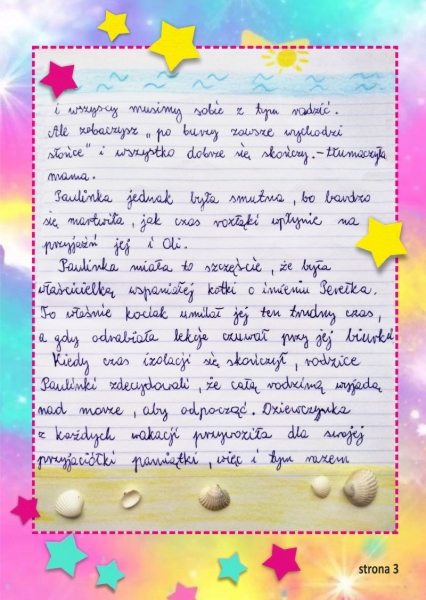 i wszyscy musimy sobie z tym radzić.
Ale zobaczysz „po burzy zawsze wychodzi
słońce" i wszystko dobrze się skończy. - tłumaczyła
mama.
Paulinka jednak była smutna, bo bardzo
się martwiła, jak czas rozłąki wpłynie na
przyjaźń jej i Oli.
Paulinka miała to szczęście, że była
właścicielką wspaniałej kotki o imieniu Perełka.
To właśnie kociak umilał jej ten trudny czas,
a gdy odrabiała lekcje czuwał przy jej biurku.
Kiedy czas izolacji się skończył, rodzice
Paulinki zdecydowali, że całą rodziną wyjadą
nad morze, aby odpocząć. Dziewczynka
z każdych wakacji przywoziła dla swojej
przyjaciółki pamiątki, więc i tym razem
strona 3